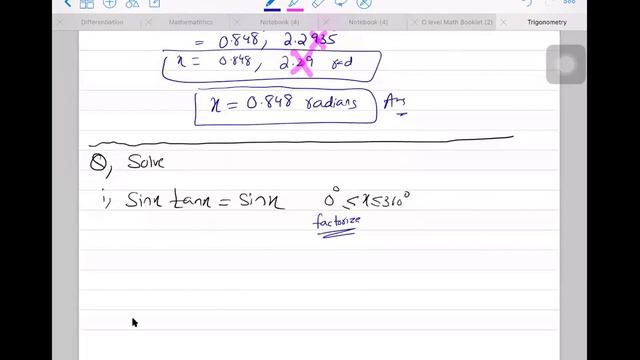 Differentiation Mathematitics Notebook (4) Notebook (4) O level Math Booklet (2) Trigonometry
= 0.848, 2.2935
x = 0.848, 2.29 rad
x = 0.848 radians Ans
Q, Solve
i, Sinx tanx = Sinx 0° ≤ x ≤ 360°
factorize